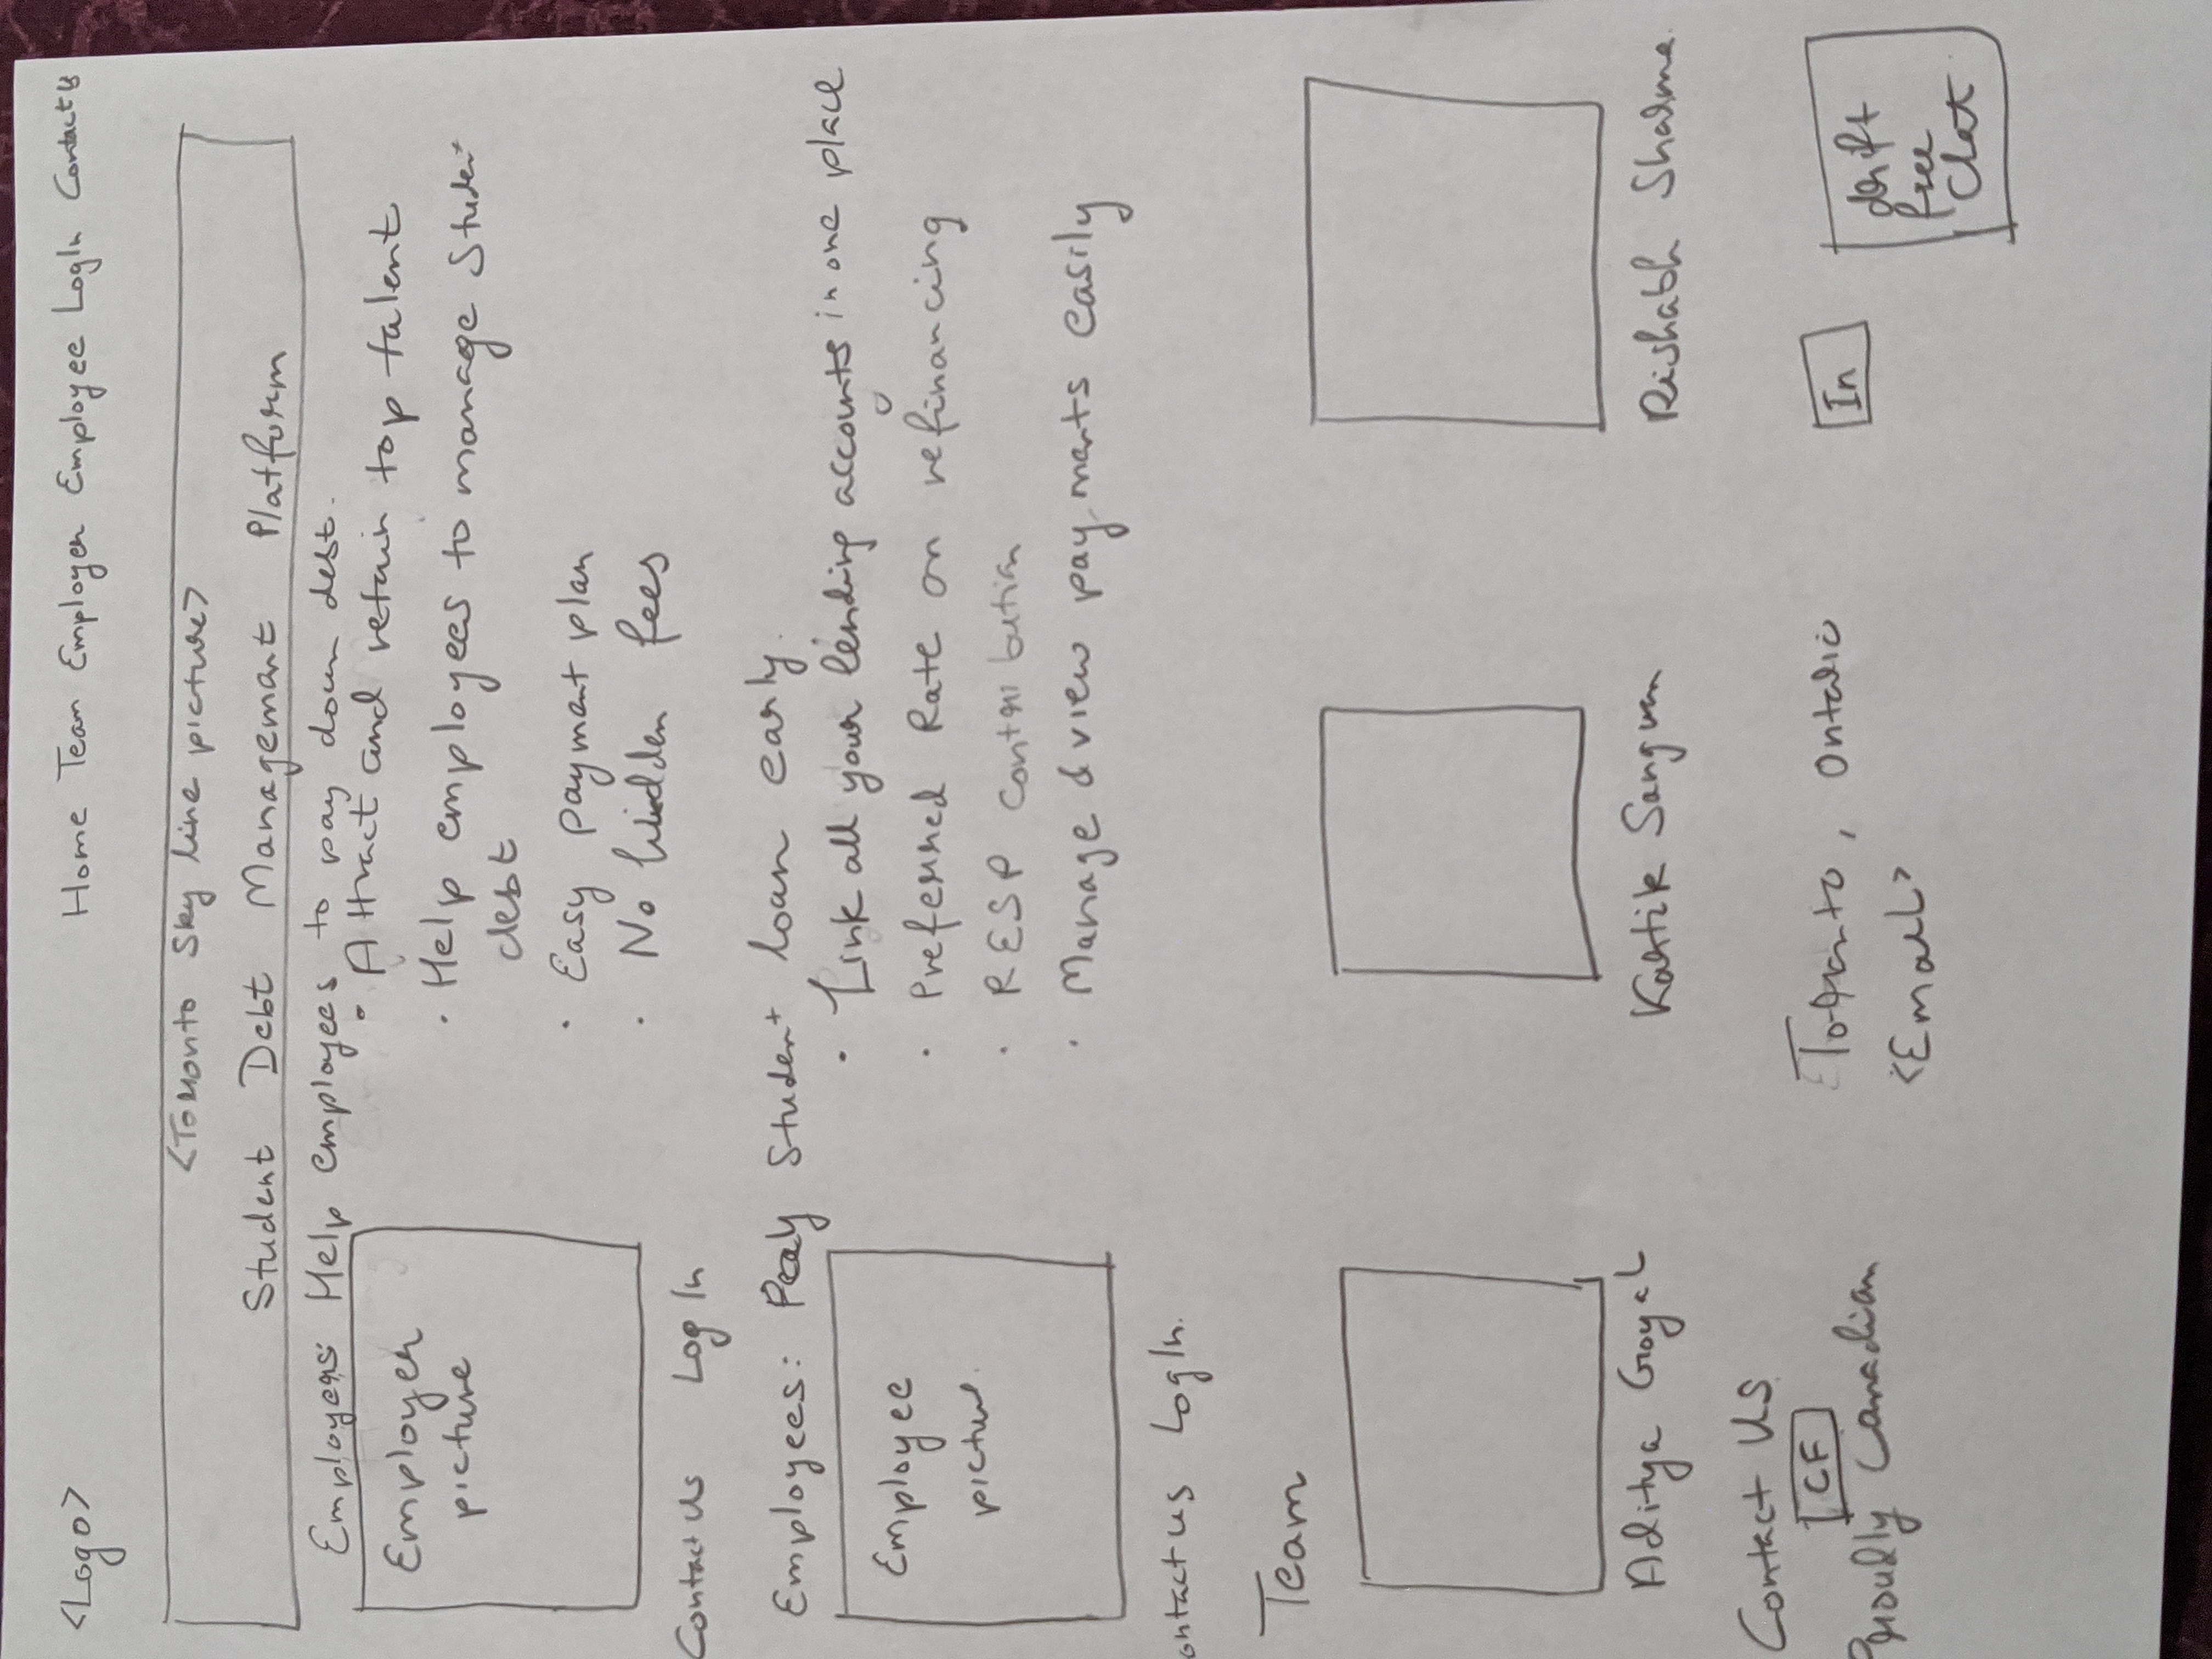 <Logo>
Home Team Employer Employee LogIn Contact Us
<Toronto Sky line picture>
Student Debt Management Platform
Employers: Help employees to pay down debt.
Employer
picture
· Attract and retain top talent
· Help employees to manage Student
debt
· Easy payment plan
· No hidden fees
Contact Us Log In
Employees: Pay Student loan early.
Employee
picture.
· Link all your lending accounts in one place
· Preferred Rate on refinancing
· RESP Contribution
· Manage & view payments easily
ontact us LogIn.
Team
Aditya Goyal
Kartik Sangwan
Rishabh Sharma
Contact Us
CF
Proudly Canadian
Toronto, Ontario
<Email>
In
drift
free
Chat